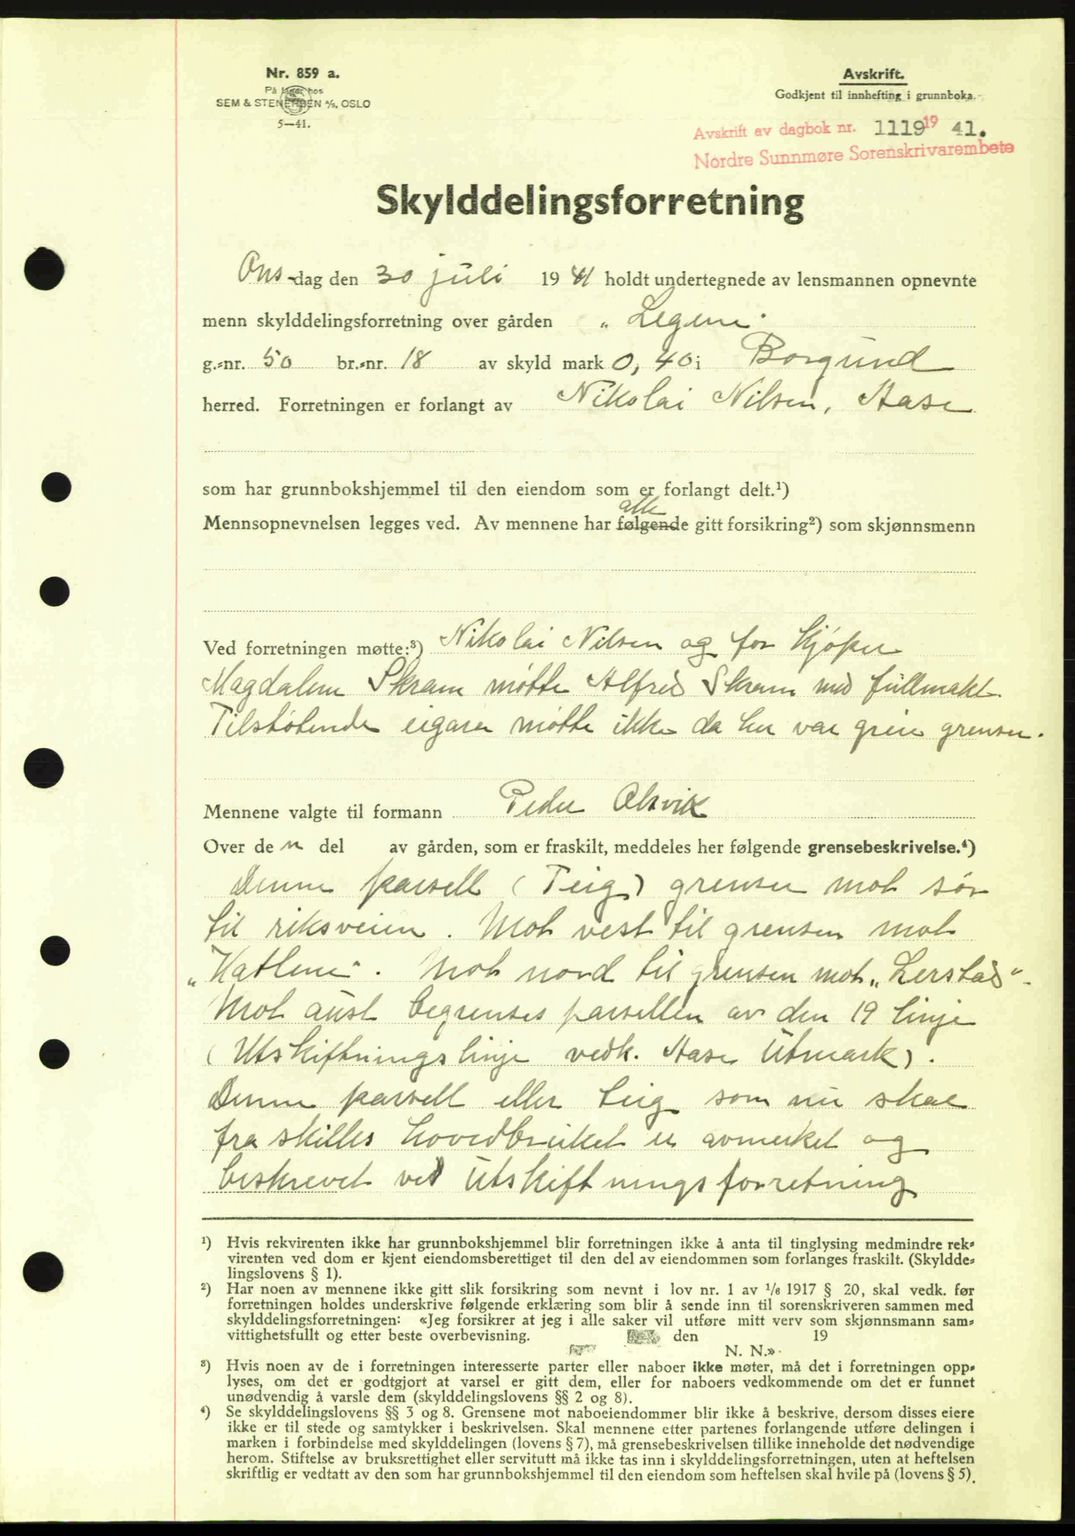 Nr. 859 a.
På lager hos
SEM & STENERSEN A/S, OSLO
5—41.
Avskrift.
Godkjent til innhefting i grunnboka.
Avskrift av dagbok nr. 1119 19 41.
Nordre Sunnmøre Sorenskrivarembete
Skylddelingsforretning
Ons-dag den 30 juli 19 41 holdt undertegnede av lensmannen opnevnte
menn skylddelingsforretning over gården „Legene"
g.-nr. 50 br.-nr. 18 av skyld mark 0,40 i Borgund
herred. Forretningen er forlangt av Nikolai Nilsen, Aase
som har grunnbokshjemmel til den eiendom som er forlangt delt.¹)
alle
Mennsopnevnelsen legges ved. Av mennene har følgende gitt forsikring²) som skjønnsmenn
Ved forretningen møtte:³) Nikolai Nilsen og for kjøper
Magdalene Skram møtte Alfred Skram med fullmakt.
Tilstøtende eigarar møtte ikke da her var greie grenser.
Mennene valgte til formann Peder Alsvik
Over de n del av gården, som er fraskilt, meddeles her følgende grensebeskrivelse.⁴)
Denne parsell (Teig) grenser mot sør
til riksveien. Mot vest til grensen mot
„Hatlene". Mot nord til grensen mot „Lerstad".
Mot aust begrenses parsellen av den 19 linje
(Utskiftningslinje vedk. Aase Utmark).
Denne parsell eller teig som nu skal
fraskilles hovedbruket er avmerket og
beskrevet ved Utskiftningsforretning
¹) Hvis rekvirenten ikke har grunnbokshjemmel blir forretningen ikke å anta til tinglysing medmindre rek-
virenten ved dom er kjent eiendomsberettiget til den del av eiendommen som forlanges fraskilt. (Skyldde-
lingslovens § 1).
²) Har noen av mennene ikke gitt slik forsikring som nevnt i lov nr. 1 av ¹/₆ 1917 § 20, skal vedk. før
forretningen holdes underskrive følgende erklæring som blir å sende inn til sorenskriveren sammen med
skylddelingsforretningen: «Jeg forsikrer at jeg i alle saker vil utføre mitt verv som skjønnsmann sam-
vittighetsfullt og etter beste overbevisning. den 19
N. N.»
³) Hvis noen av de i forretningen interesserte parter eller naboer ikke møter, må det i forretningen opp-
lyses, om det er godtgjort at varsel er gitt dem, eller for naboers vedkommende om det er funnet
unødvendig å varsle dem (skylddelingslovens §§ 2 og 8).
⁴) Se skylddelingslovens §§ 3 og 8. Grensene mot naboeiendommer blir ikke å beskrive, dersom disses eiere
ikke er til stede og samtykker i beskrivelsen. Skal mennene etter partenes forlangende utføre delingen i
marken i forbindelse med skylddelingen (lovens § 7), må grensebeskrivelsen tillike inneholde det nødvendige
herom. Stiftelse av bruksrettighet eller servitutt må ikke tas inn i skylddelingsforretningen, uten at heftelsen
skriftlig er vedtatt av den som har grunnbokshjemmel til den eiendom som heftelsen skal hvile på (lovens § 5).